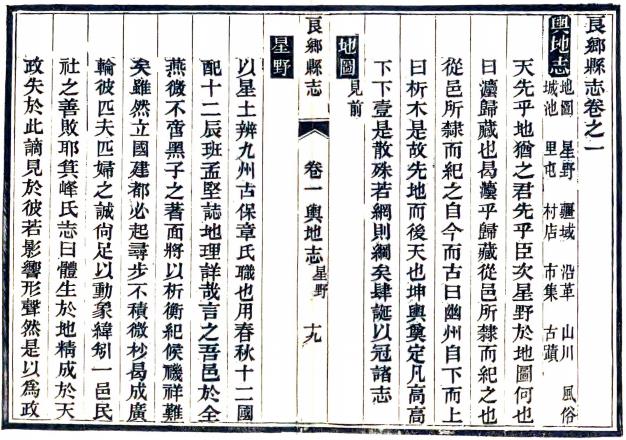 良鄉縣志卷之一
輿地志 地圖 星野 疆域 沿革 山川 風俗
城池 里屯 村店 市集 古蹟
天先乎地猶之君先乎臣次星野於地圖何也
曰灋歸藏也曷灋乎歸藏從邑所隸而紀之也
從邑所隸而紀之自今而古曰幽州自下而上
曰析木是故先地而後天也坤輿奠定凡高高
下下壹是散殊若網則綱矣肆誕以冠諸志
地圖 見前
良鄉縣志 卷一 輿地志 星野 十九
星野
以星土辨九州古保章氏職也用春秋十二國
配十二辰班孟堅誌地理詳哉言之吾邑於全
燕微不啻黑子之著面將以析衡紀候禨祥難
矣雖然立國建都必起尋步不積微杪曷成廣
輪彼匹夫匹婦之誠尚足以動象緯矧一邑民
社之善敗耶箕峰氏志曰體生於地精成於天
政失於此謫見於彼若影響形聲然是以爲政